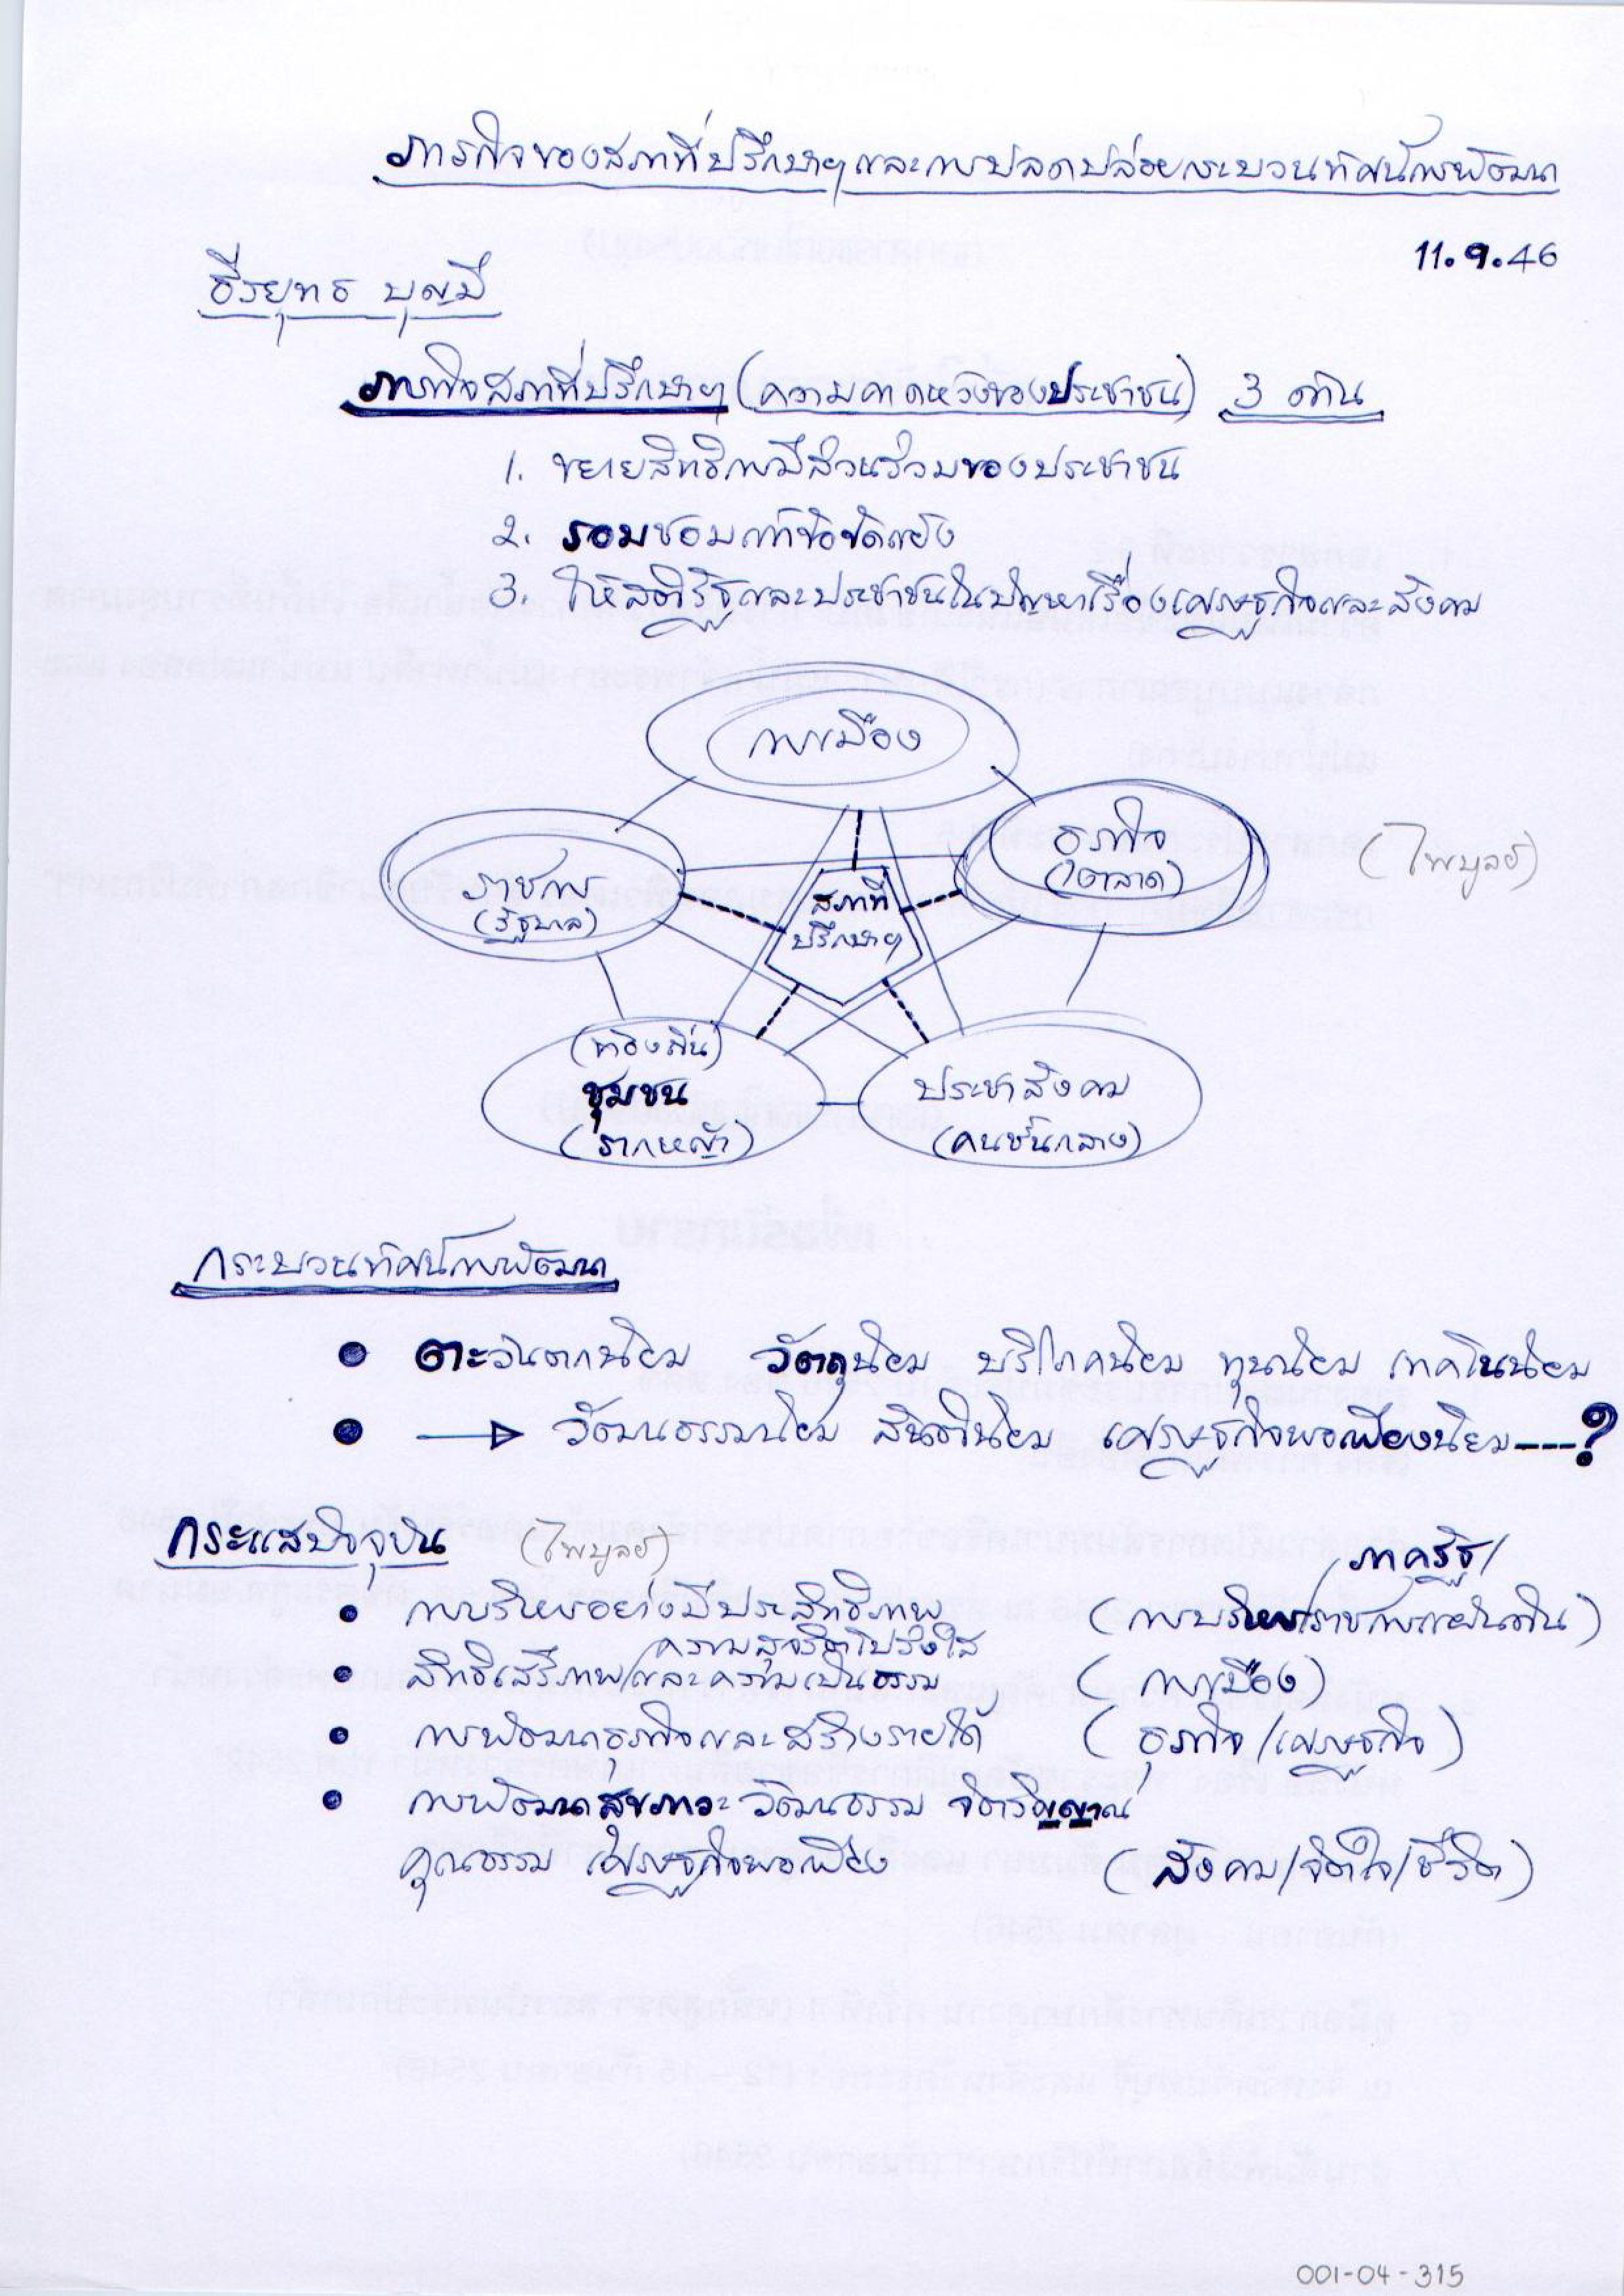 ภารกิจของสภาที่ปรึกษาฯและการปลดปล่อยกระบวนทัศน์การพัฒนา
11.9.46
ธีรยุทธ บุญมี
ภารกิจสภาที่ปรึกษาฯ (ความคาดหวังของประชาชน) 3 ด้าน
1. ขยายสิทธิการมีส่วนร่วมของประชาชน
2. รอมชอมแก้ข้อขัดแย้ง
3. ให้สติรัฐและประชาชนในปัญหาเรื่องเศรษฐกิจและสังคม
การเมือง
ราชการ
(รัฐบาล)
ธุรกิจ
(ตลาด)
(ไพบูลย์)
สภาที่
ปรึกษาฯ
(ท้องถิ่น)
ชุมชน
(รากหญ้า)
ประชาสังคม
(คนชั้นกลาง)
กระบวนทัศน์การพัฒนา
• ตะวันตกนิยม วัตถุนิยม บริโภคนิยม ทุนนิยม เทคโนนิยม
• → วัฒนธรรมนิยม สันตินิยม เศรษฐกิจพอเพียงนิยม---?
กระแสปัจจุบัน (ไพบูลย์)
• การบริหารอย่างมีประสิทธิภาพ (การบริหารราชการแผ่นดิน) /ภาครัฐ/
• สิทธิเสรีภาพ/และความเป็นธรรม (การเมือง)
ความสุจริตโปร่งใส
• การพัฒนาธุรกิจและสร้างรายได้ (ธุรกิจ/เศรษฐกิจ)
• การพัฒนาสุขภาวะ วัฒนธรรม จิตวิญญาณ
คุณธรรม เศรษฐกิจพอเพียง (สังคม/จิตใจ/ชีวิต)
001-04-315